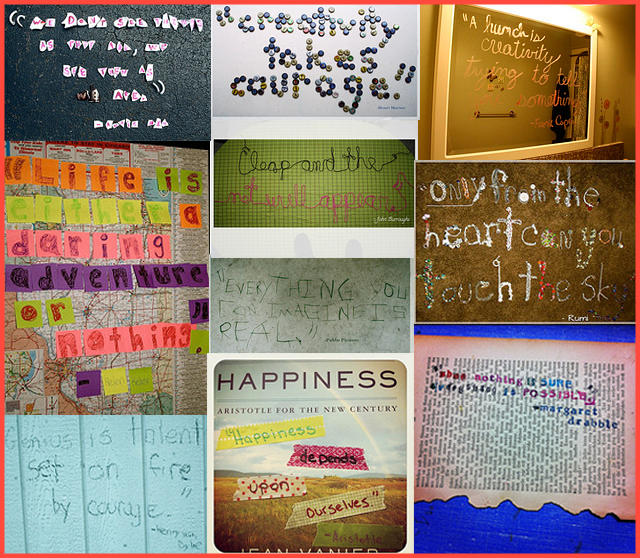 "WE DON'T SEE THINGS
AS THEY ARE, WE
SEE THEM AS
WE ARE."
"Creativity
takes
courage"
-Henri Matisse
"A hunch is
creativity
trying to tell
you something"
-Frank Capra
"Life is
either a
daring
adventure
or
nothing."
"Leap and the
net will appear."
-John Burroughs
"only from the
heart can you
touch the sky"
- Rumi
"EVERYTHING YOU
CAN IMAGINE IS
REAL."
-Pablo Picasso
Genius is talent
set on fire
by courage."
HAPPINESS
ARISTOTLE FOR THE NEW CENTURY
"Happiness
depends
upon
ourselves"
-Aristotle
JEAN VANIER
nothing is SURE
everything is POSSIBLE"
-margaret
drabble